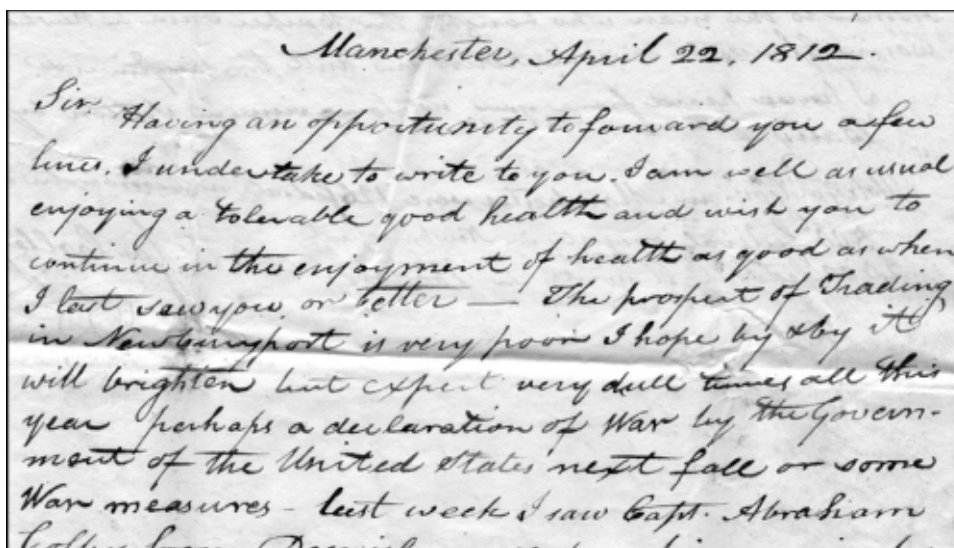 Manchester, April 22, 1812.
Sir Having an opportunity to forward you a few
lines. I undertake to write to you. I am well as usual
enjoying a tolerable good health and wish you to
continue in the enjoyment of health as good as when
I last saw you or better — The prospect of Trading
in Newburyport is very poor I hope by & by it
will brighten but expect very dull times all this
year perhaps a declaration of War by the Govern-
ment of the United States next fall or some
War measures - last week I saw Capt. Abraham